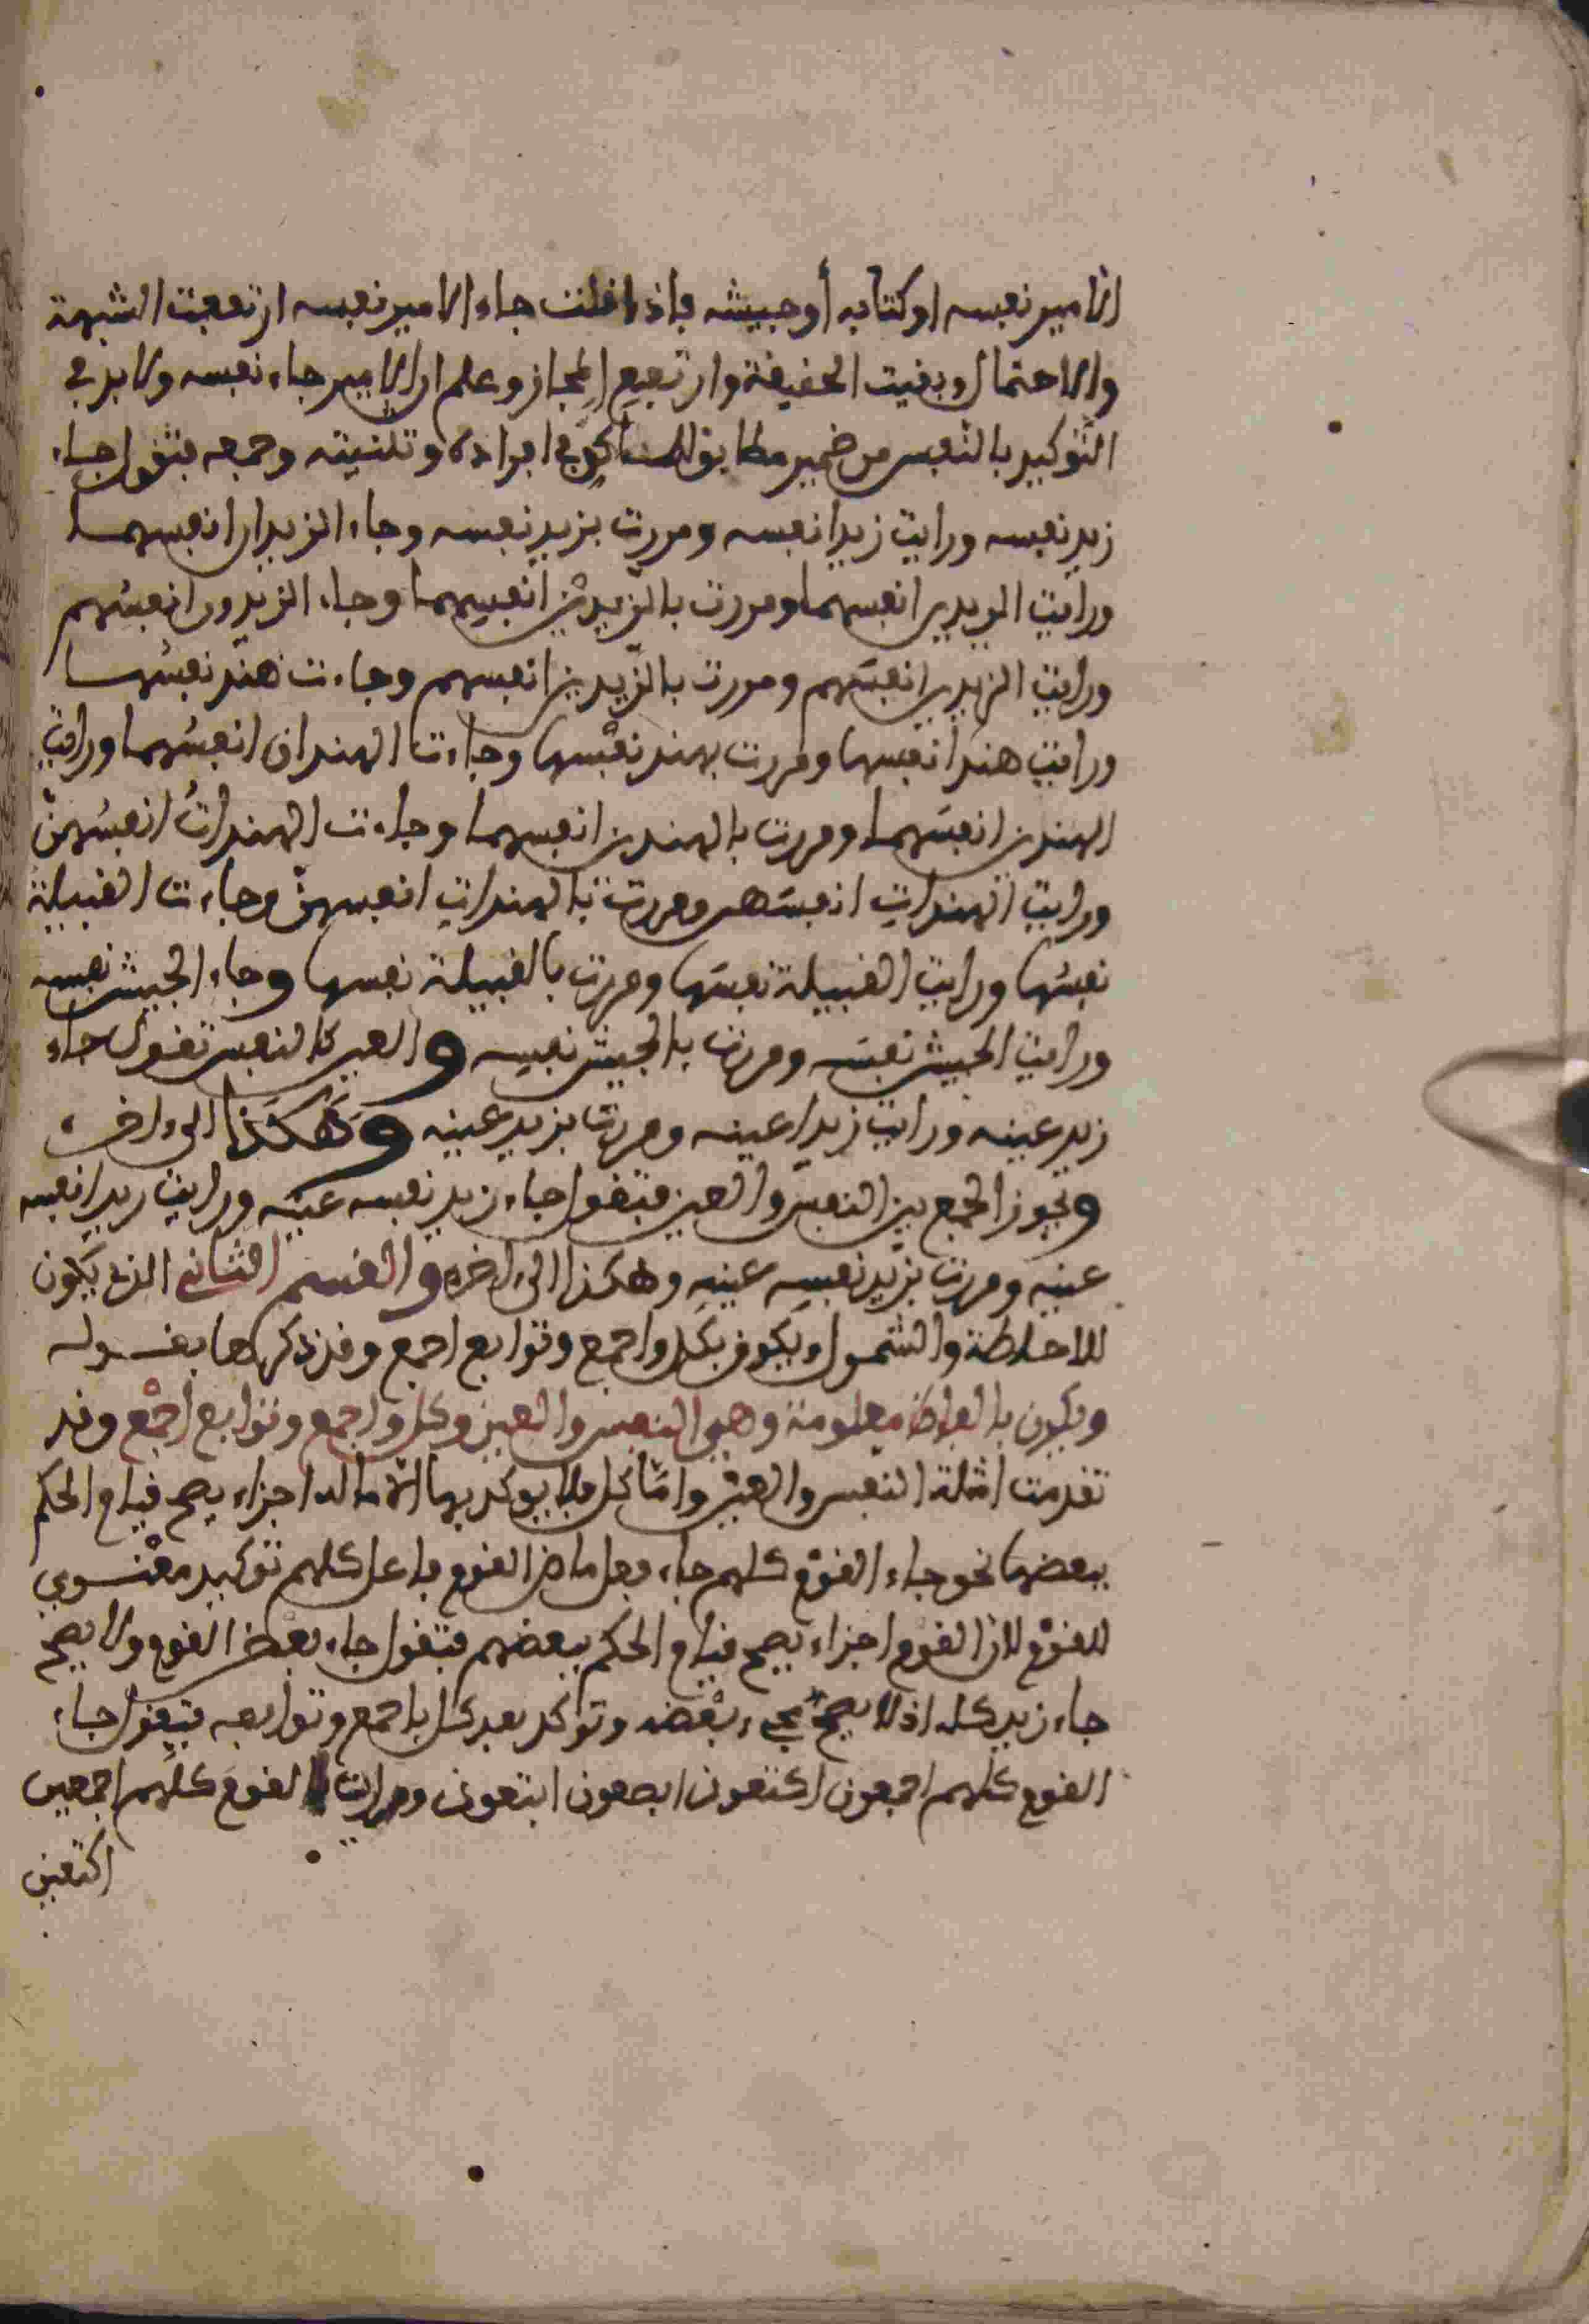 الامير نفسه او كتابه أو جيشه فإذا قلت جاء الامير نفسه ارتفعت الشبهة
والاحتمال وبقيت الحقيقة وارتفع المجاز وعلم ان الامير جاء نفسه ولابد في
التوكيد بالنفس من ضمير مطابق للمؤكد في افراده وتثنيته وجمعه فتقول جاء
زيد نفسه ورايت زيدا نفسه ومررت بزيد نفسه وجاء الزيدان انفسهما
ورايت الزيدين انفسهما ومررت بالزيدين انفسهما وجاء الزيدون انفسهم
ورايت الزيدين انفسَهم ومررت بالزيدين انفسهم وجاءت هند نفسُها
ورايت هندا نفسها ومررت بهند نفسها وجاءت الهندان انفسُهما ورايت
الهندين انفسَهما ومررت بالهندين انفسهما وجاءت الهنداتُ انفسُهنّ
ورايت الهنداتِ انفسَهن ومررت بالهنداتِ انفسهنّ وجاءت القبيلة
نفسُها ورايت القبيلة نفسَها ومررت بالقبيلة نفسها وجاء الجيش نفسه
ورايت الجيش نفسَه ومررت بالجيش نفسِه والعين كالنفس تقول جاء
زيد عينه ورايت زيدا عينه ومررت بزيد عينه وَهَكَذا الى اخره
ويجوز الجمع بين النفس والعين فتقول جاء زيد نفسه عينه ورايت زيدا نفسه
عينه ومررت بزيد نفسِه عينِه وهكذا الى اخره والقسم الثاني الذي يكون
للاحاطة والشمول ويكون بكل واجمع وتوابع اجمع وقد ذكرها بقوله
ويكون بالفاظ معلومة وهي النفس والعين وكل واجمع وتوابع اجْمع وقد
تقدمت امثلة النفس والعين وامّا كل فلا يوكد بها الا ما له اجزاء يصح قيام الحكم
ببعضها نحو جاء القوم كلهم جاء فعل ماض القوم فاعل كلهم توكيد معنوي
للقوم لان القوم اجزاء يصح قيام الحكم ببعضهم فتقول جاء بعض القوم ولا يصح
جاء زيد كله اذ لا يصح مجيء بعْضه وتوكد بعد كل باجمع وتوابعه فتقول جاء
القوم كلهم اجمعون اكتعون ابصعون ابتعون ورايت القومَ كلَهم اجمعين
اكتعين